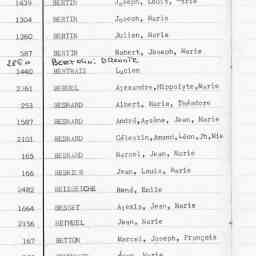 1439 BERTIN Joseph, Louis, Marie
1304 BERTIN Joseph, Marie
1260 BERTIN Julien, Marie
587 BERTIN Robert, Joseph, Marie
BERTOLINI
1440 BERTRAIS Lucien
2361 BESNEL Alexandre, Hippolyte, Marie
253 BESNARD Albert, Marie, Théodore
1587 BESNARD Jean, Marie
2103 BESNARD Célestin, Amand, Léon, Jh, Mie
165 BESNARD Marcel, Jean, Marie
166 Jean, Louis, Marie
2482 René, Emile
1664 BESRET Alexis, Jean, Marie
2156 BETHUEL Jean, Marie
167 BETTON Marcel, Joseph, François